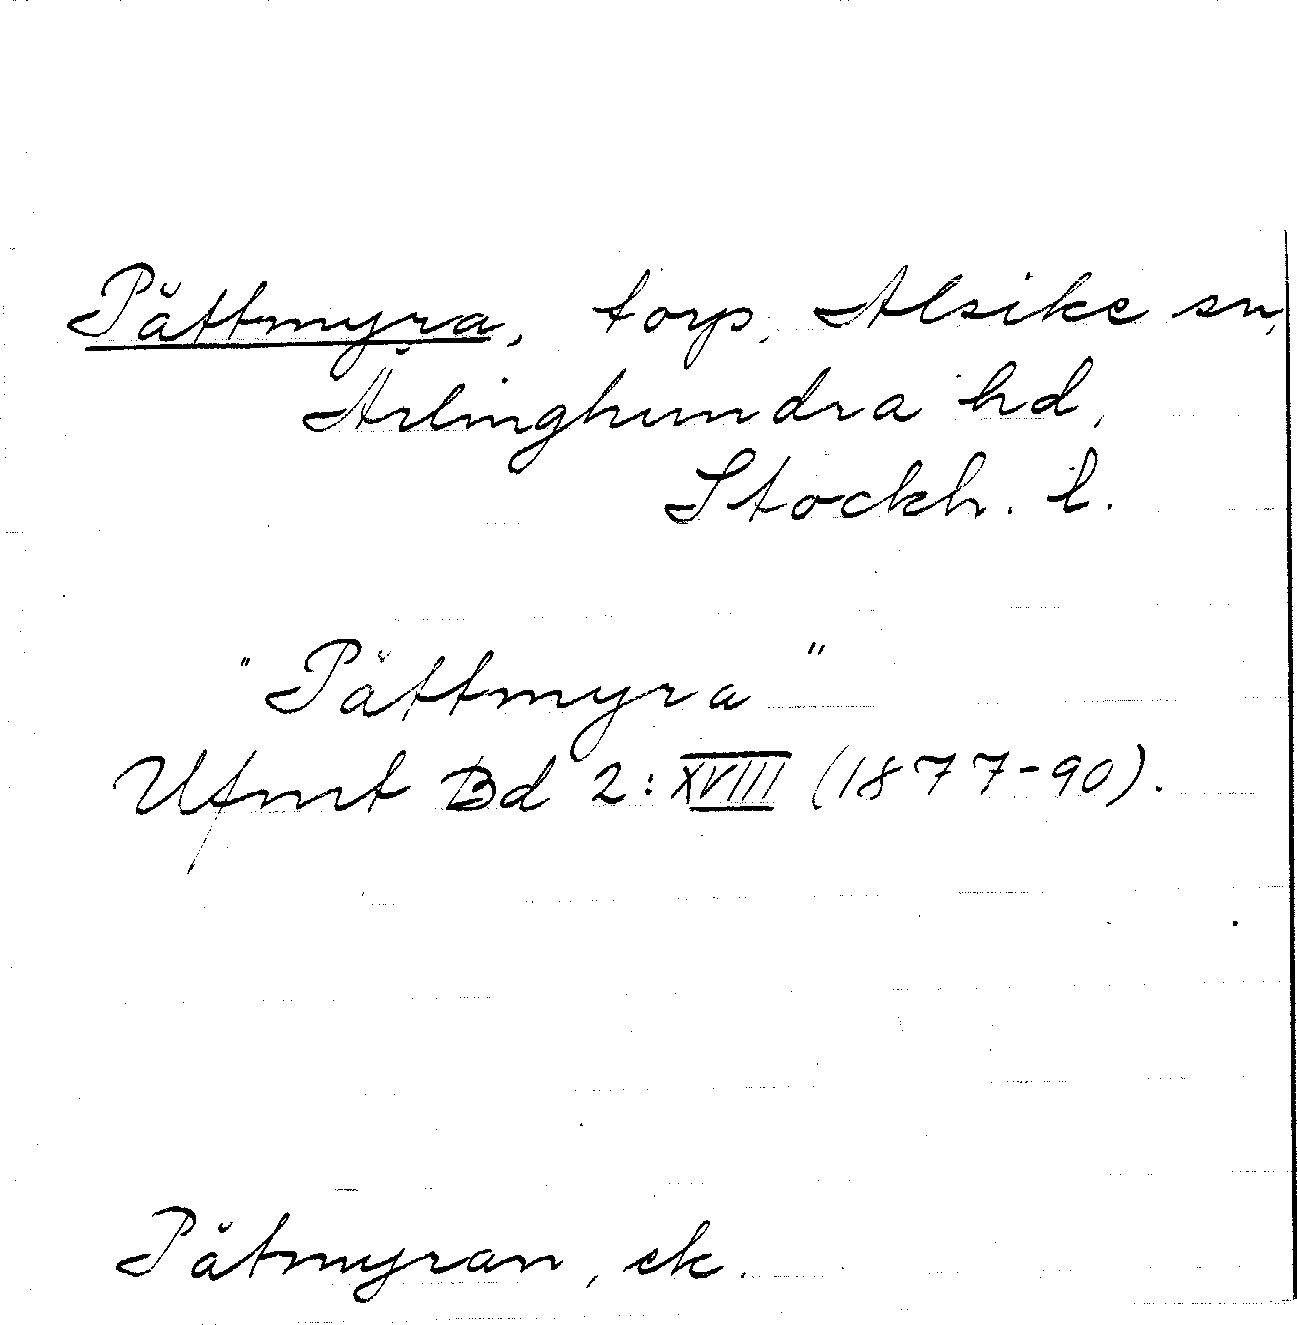 Påttmyra, torp, Alsike sn,
Ärlinghundra hd,
Stockh. l.
"Påttmyra"
Ufmt Bd 2: XVIII (1877-90).
Påtmyran, ek.